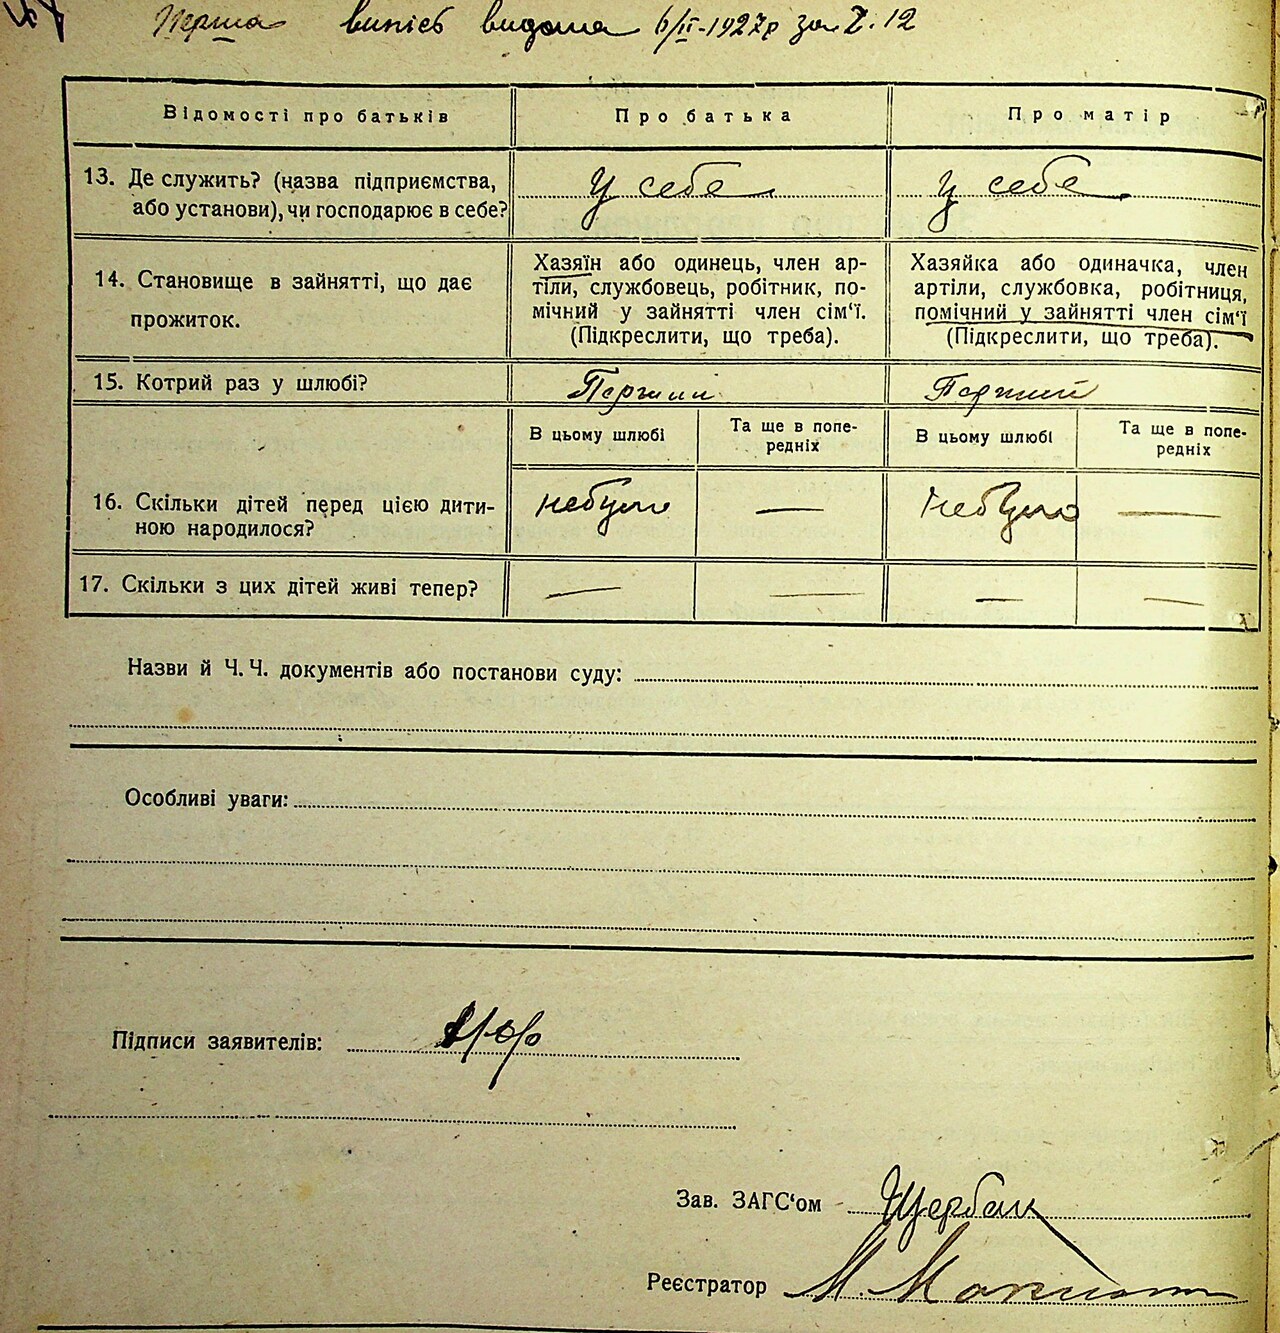 Перша випис видана 6/II-1927р за Z. 12
Відомості про батьків
Про батька
Про матір
13. Де служить? (назва підприємства,
або установи), чи господарює в себе?
У себе
У себе
14. Становище в зайнятті, що дає
прожиток.
Хазяїн або одинець, член ар-
тіли, службовець, робітник, по-
мічний у зайнятті член сім‘ї.
(Підкреслити, що треба).
Хазяйка або одиначка, член
артіли, службовка, робітниця,
помічний у зайнятті член сім‘ї
(Підкреслити, що треба).
15. Котрий раз у шлюбі?
Перший
Перший
В цьому шлюбі
Та ще в попе-
редніх
В цьому шлюбі
Та ще в попе-
редніх
16. Скільки дітей перед цією дити-
ною народилося?
небуло
—
небуло
—
17. Скільки з цих дітей живі тепер?
—
—
—
—
Назви й Ч. Ч. документів або постанови суду:
Особливі уваги:
Підписи заявителів:
Зав. ЗАГС‘ом Щербак
Реєстратор М.